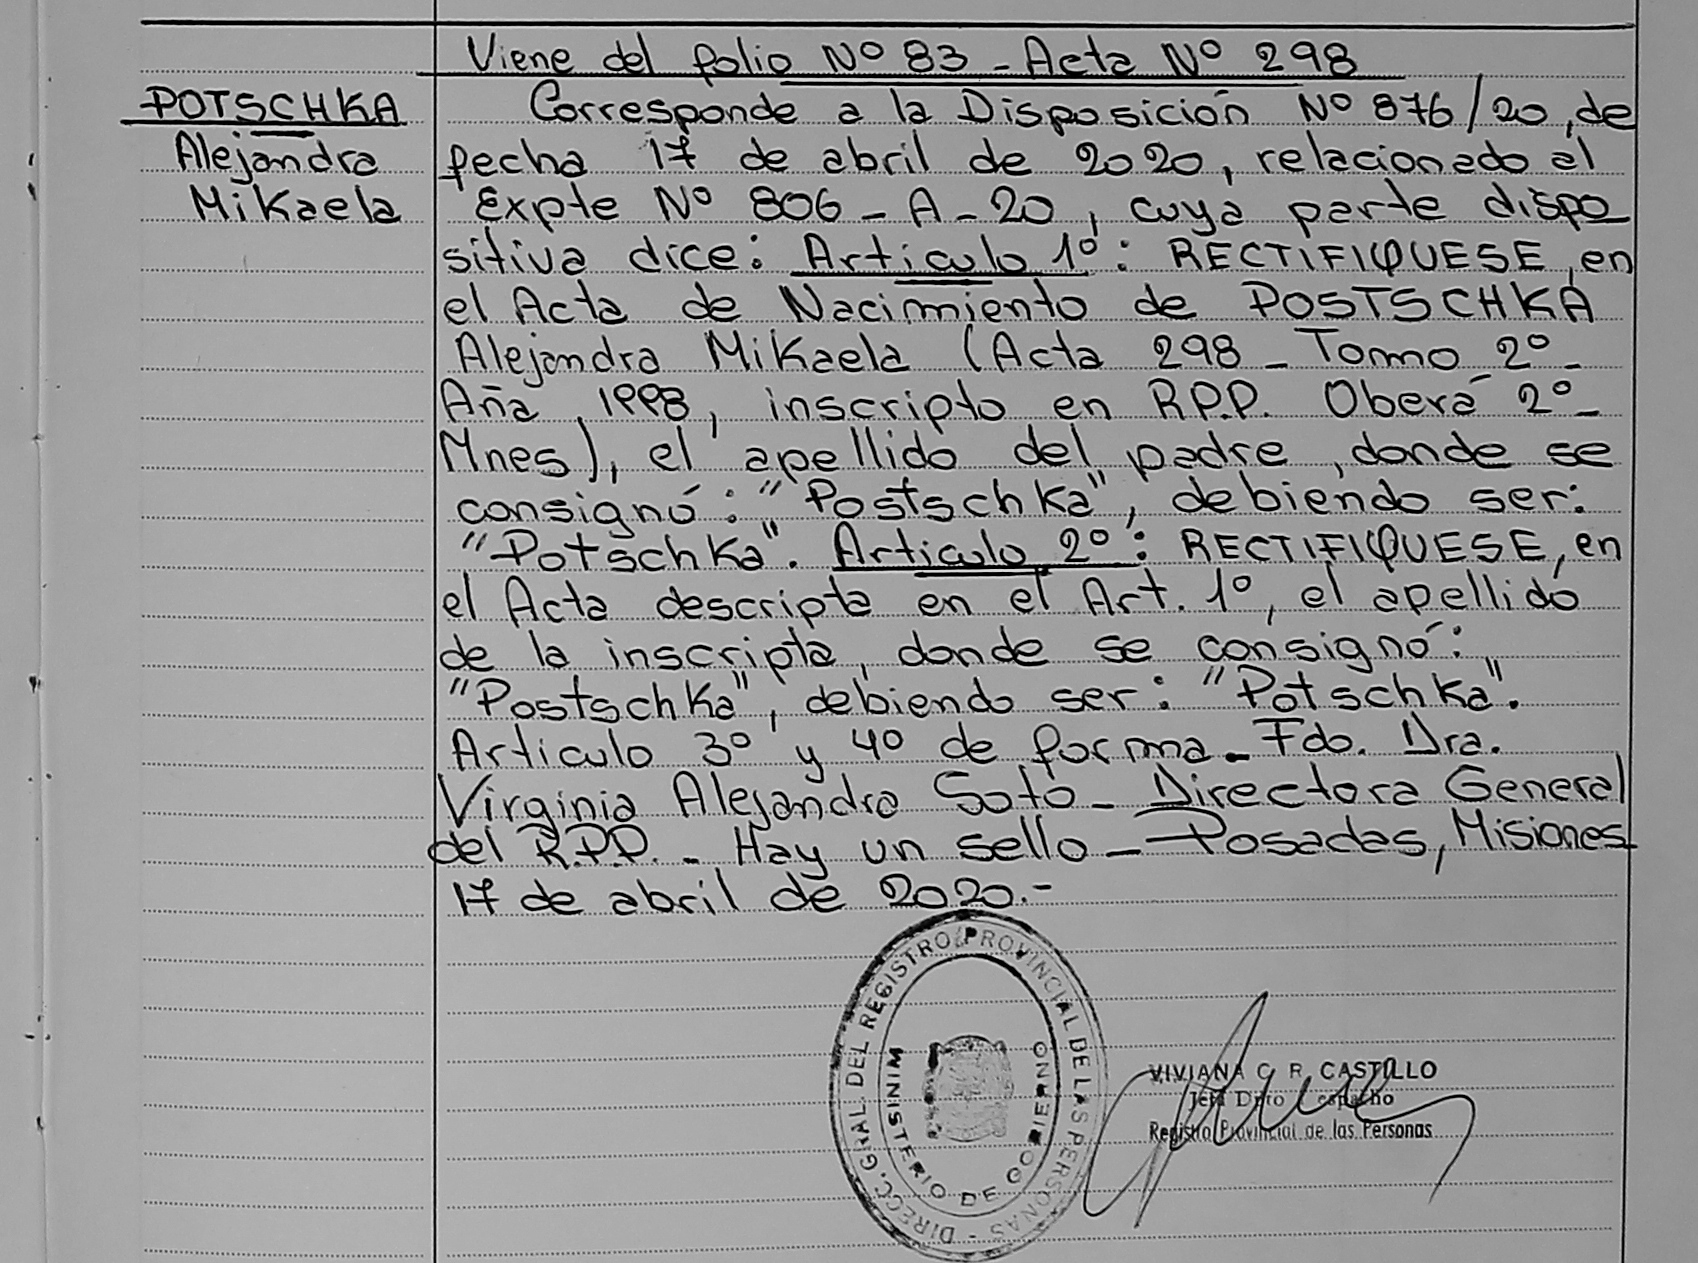 Viene del folio Nº 83 - Acta Nº 298
POTSCHKA
Alejandra
Mikaela
Corresponde a la Disposición Nº 876/20, de
fecha 17 de abril de 2020, relacionado al
Expte Nº 806 - A - 20, cuya parte dispo
sitiva dice: Articulo 1º: RECTIFIQUESE, en
el Acta de Nacimiento de POSTSCHKA
Alejandra Mikaela (Acta 298 - Tomo 2º -
Aña 1998, inscripto en R.P.P. Oberá 2º -
Mnes), el apellido del padre, donde se
consignó: "Postschka", debiendo ser:
"Potschka". Articulo 2º: RECTIFIQUESE, en
el Acta descripta en el Art. 1º, el apellido
de la inscripta, donde se consignó:
"Postschka", debiendo ser: "Potschka".
Articulo 3º y 4º de forma - Fdo. Dra.
Virginia Alejandra Soto - Directora General
del R.P.P. - Hay un sello - Posadas, Misiones
17 de abril de 2020.-
DIRECC. GRAL. DEL REGISTRO PROVINCIAL DE LAS PERSONAS -
MINISTERIO DE GOBIERNO
VIVIANA C. R. CASTILLO
Jefa Dpto
Registro Provincial de las Personas